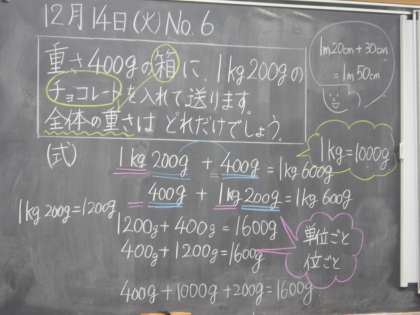 12月14日(火)No.6
重さ400gの箱に、1kg200gの
チョコレートを入れて送ります。
全体の重さは どれだけでしょう。
1m20cm+30cm
=1m50cm
(式)
1kg=1000g
1kg 200g + 400g = 1kg 600g
= 400g + 1kg 200g = 1kg 600g
1kg 200g = 1200g
1200g + 400g = 1600g
400g + 1200g = 1600g
400g + 1000g + 200g = 1600g
単位ごと
位ごと